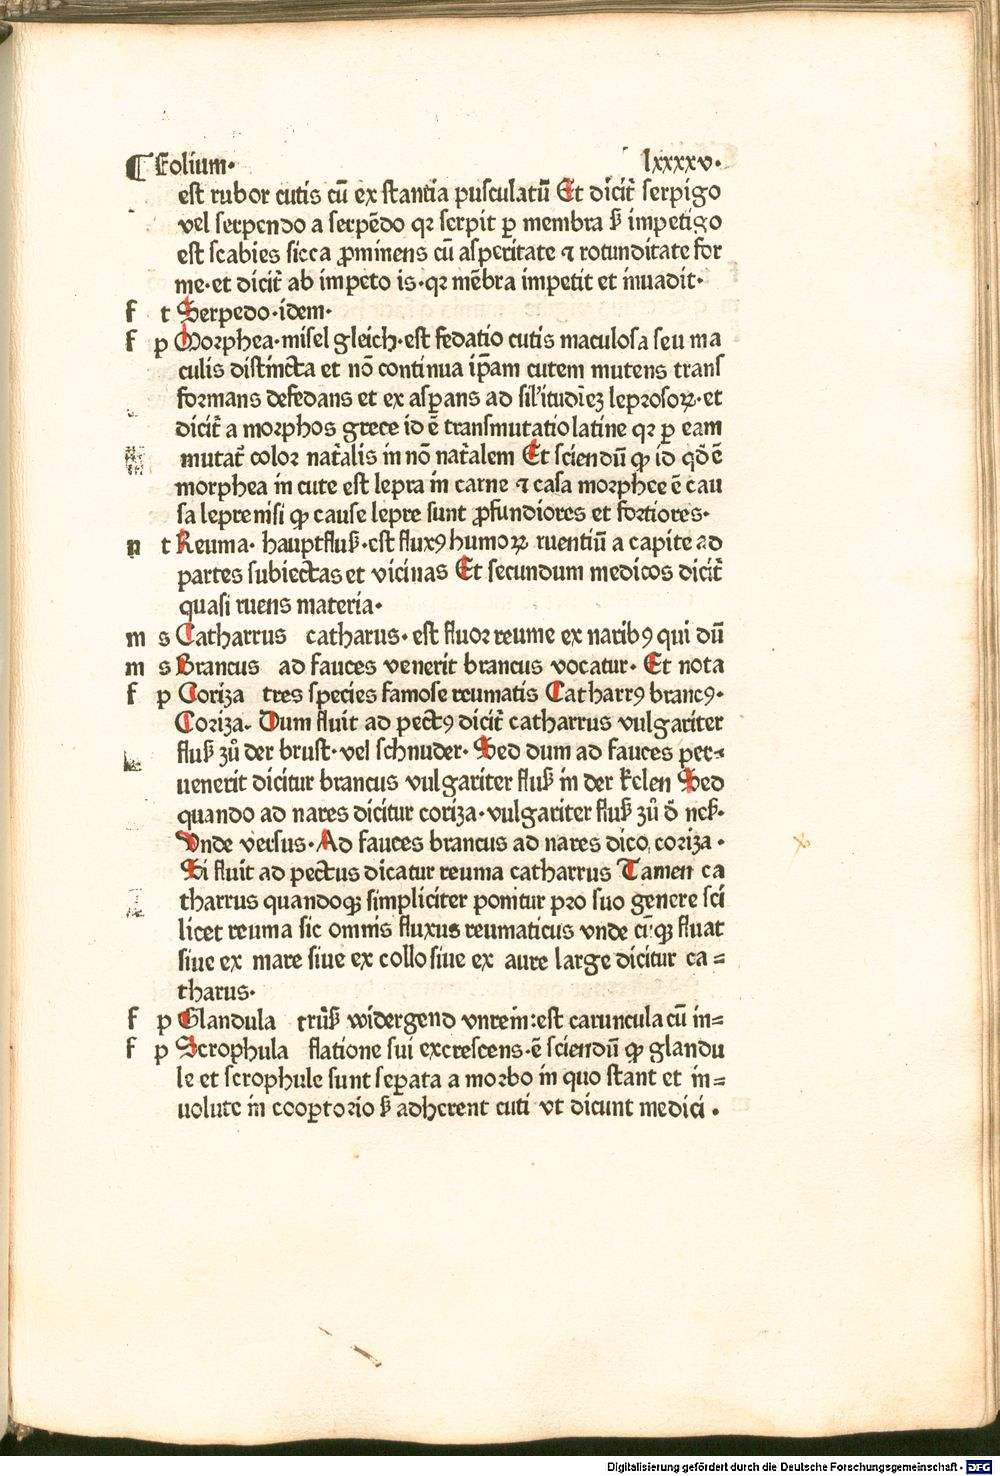 ¶ Folium. lxxxxv.
est rubor cutis cū ex stantia pusculatū Et dicit᷑ serpigo
vel serpendo a serpēdo qꝛ serpit ꝑ membra sꝫ impetigo
est scabies sicca ꝓminens cū asperitate ⁊ rotunditate for
me·et dicit᷑ ab impeto is·qꝛ mēbra impetit et inuadit·
f t Serpedo·idem·
f p Morphea·misel gleich·est fedatio cutis maculosa seu ma
culis distincta et nō continua ip̄am cutem mutens trans
formans defedans et ex asꝑans ad sil'itudīez leprosoꝝ·et
dicit᷑ a morphos grece id ē transmutatio latine qꝛ ꝑ eam
mutat᷑ color nat᷑alis in nō nat᷑alem Et sciendū ꝙ id qd̄ ē
morphea in cute est lepra in carne ⁊ casa morphee ē cau
sa lepre nisi ꝙ cause lepre sunt ꝓfundiores et fortiores·
n t Reuma· hauptfluß·est fluxꝰ humoꝝ ruentiū a capite ad
partes subiectas et vicinas Et secundum medicos dicit᷑
quasi ruens materia·
m s Catharrus catharus·est fluor reume ex naribꝰ qui dū
m s Brancus ad fauces venerit brancus vocatur· Et nota
f p Coriza tres species famose reumatis Catharrꝰ brancꝰ·
Coriza· Dum fluit ad pectꝰ dicit᷑ catharrus vulgariter
fluß zů der brust·vel schnuder· Sed dum ad fauces per⸗
venerit dicitur brancus vulgariter fluß in der kelen Sed
quando ad nares dicitur coriza·vulgariter fluß zů d̄ neß·
Vnde versus·Ad fauces brancus ad nares dico coriza·
Si fluit ad pectus dicatur reuma catharrus Tamen ca
tharrus quandoqꝫ simpliciter ponitur pro suo genere sci
licet reuma sic omnis fluxus reumaticus vnde cūqꝫ fluat
siue ex mare siue ex collo siue ex aure large dicitur ca⸗
tharus·
f p Glandula trůß widergend vnrein:est caruncula cū in⸗
f p Scrophula flatione sui excrescens·ē sciendū ꝙ glandu
le et scrophule sunt seꝑata a morbo in quo stant et in⸗
uolute in cooꝑtorio sꝫ adherent cuti vt dicunt medici·
Digitalisierung gefördert durch die Deutsche Forschungsgemeinschaft - DFG